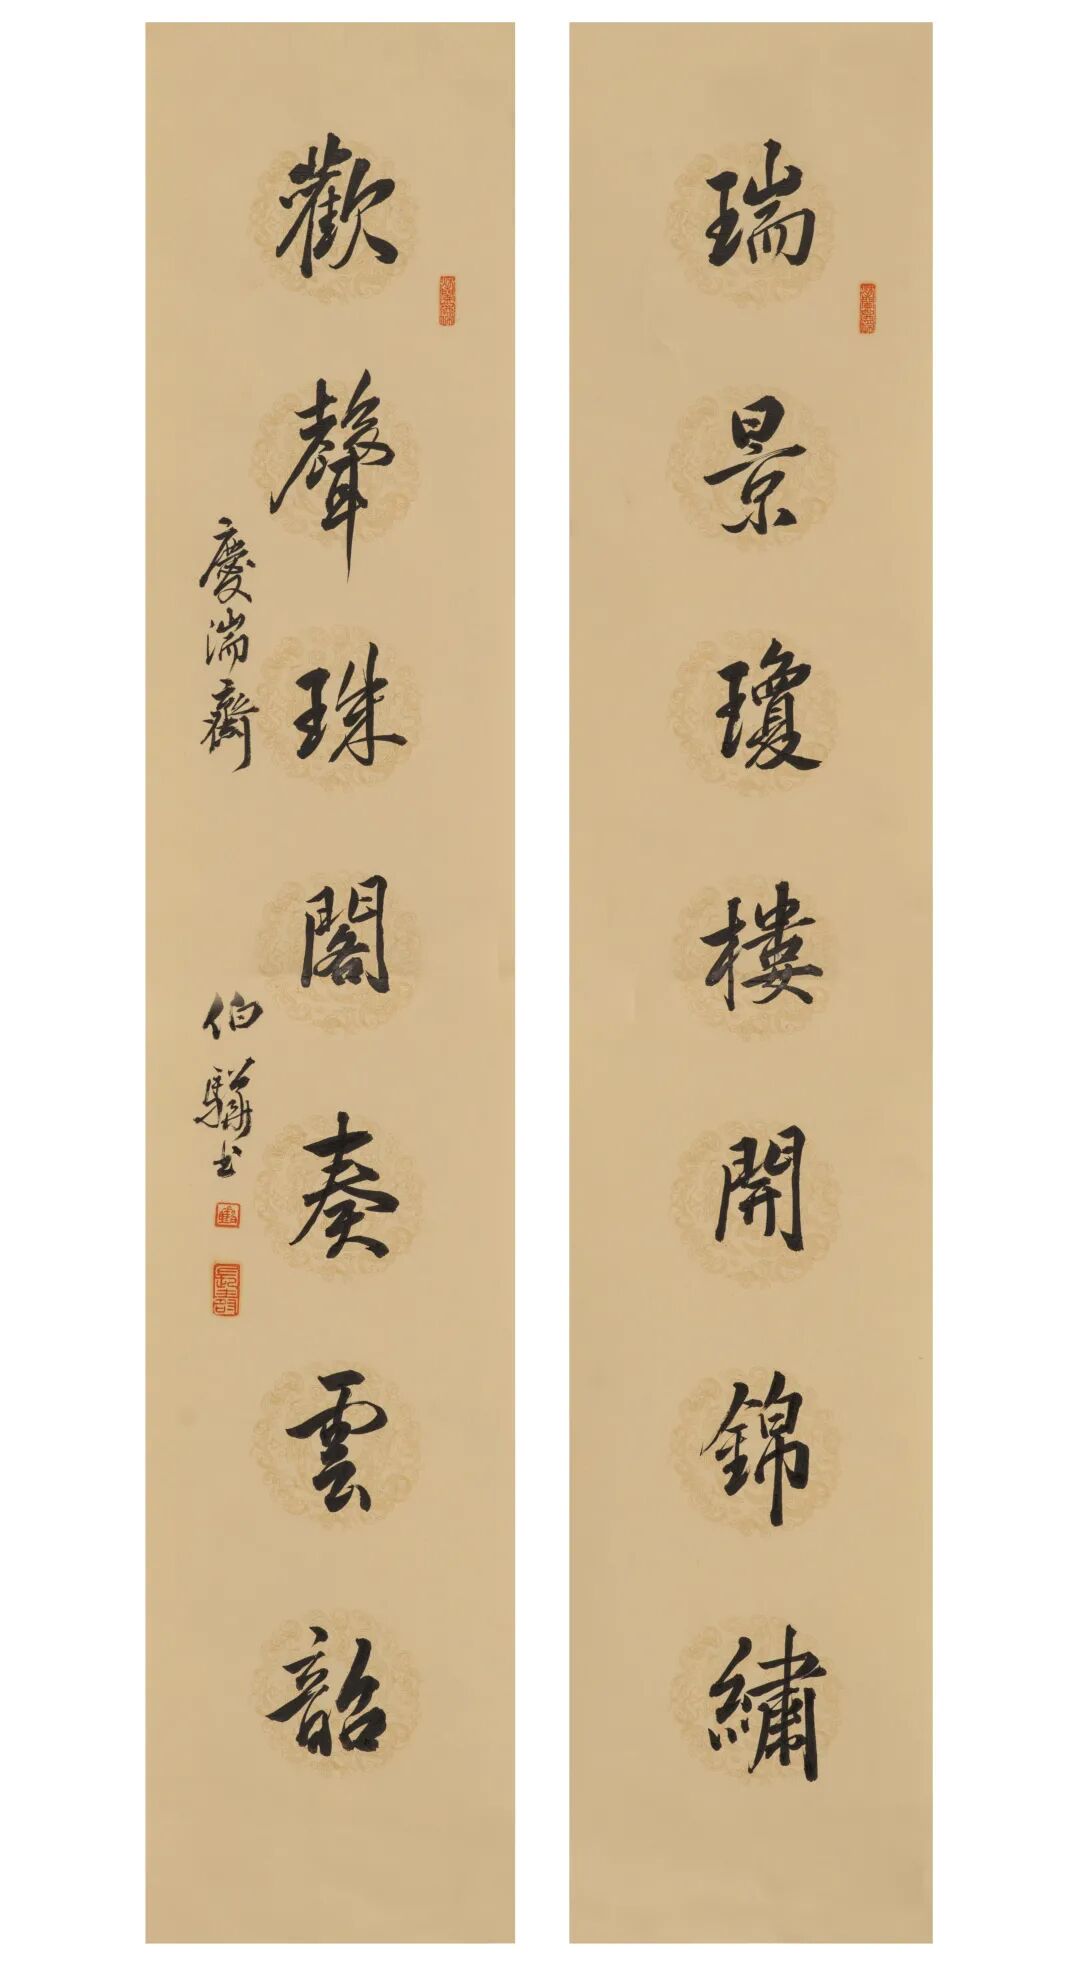 瑞景瓊樓開錦繡
歡聲珠閣奏雲韶
慶湍齋
伯驊書
長壽